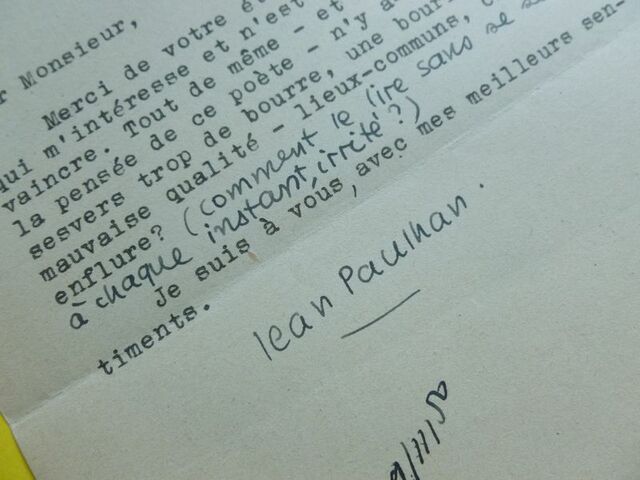 r Monsieur,
Merci de votre ét
qui m'intéresse et n'est
vaincre. Tout de même - et
la pensée de ce poète - n'y a
sesvers trop de bourre, une bour
mauvaise qualité - lieux-communs, c
enflure? (comment le lire sans se s
à chaque instant, irrité?)
Je suis à vous, avec mes meilleurs sen-
timents.
Jean Paulhan.
/III/50